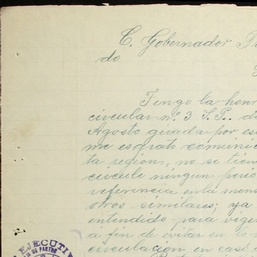 C. Gobernador
do
Tengo la hon
circular nº 3
Agosto
me es grato comunica
ta region, no se tien
circule ningun perio
referencia en la men
otros similares; ya
entendido para vige
a fin de evitar en
circulacion, en caso
EJECUTI